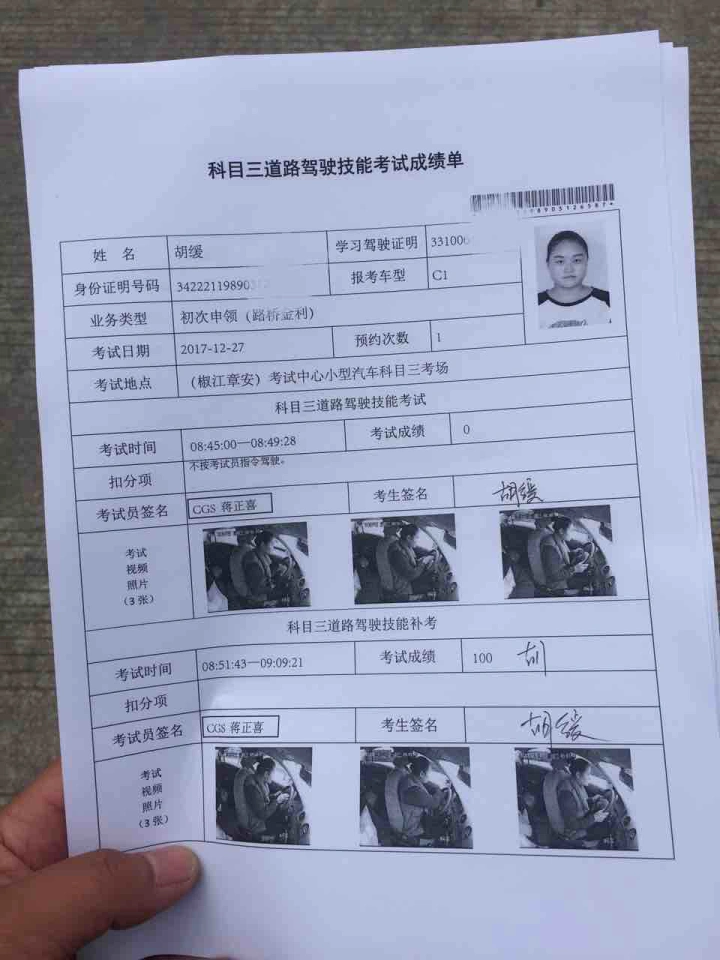 科目三道路驾驶技能考试成绩单
姓 名 胡缓 学习驾驶证明 33100
身份证明号码 34222119890 报考车型 C1
业务类型 初次申领（路桥金利）
考试日期 2017-12-27 预约次数 1
考试地点 （椒江章安）考试中心小型汽车科目三考场
科目三道路驾驶技能考试
考试时间 08:45:00—08:49:28 考试成绩 0
扣分项 不按考试员指令驾驶。
考试员签名 CGS 蒋正喜 考生签名 胡缓
考试
视频
照片
（3 张）
科目三道路驾驶技能补考
考试时间 08:51:43—09:09:21 考试成绩 100 胡
扣分项
考试员签名 CGS 蒋正喜 考生签名 胡缓
考试
视频
照片
（3 张）